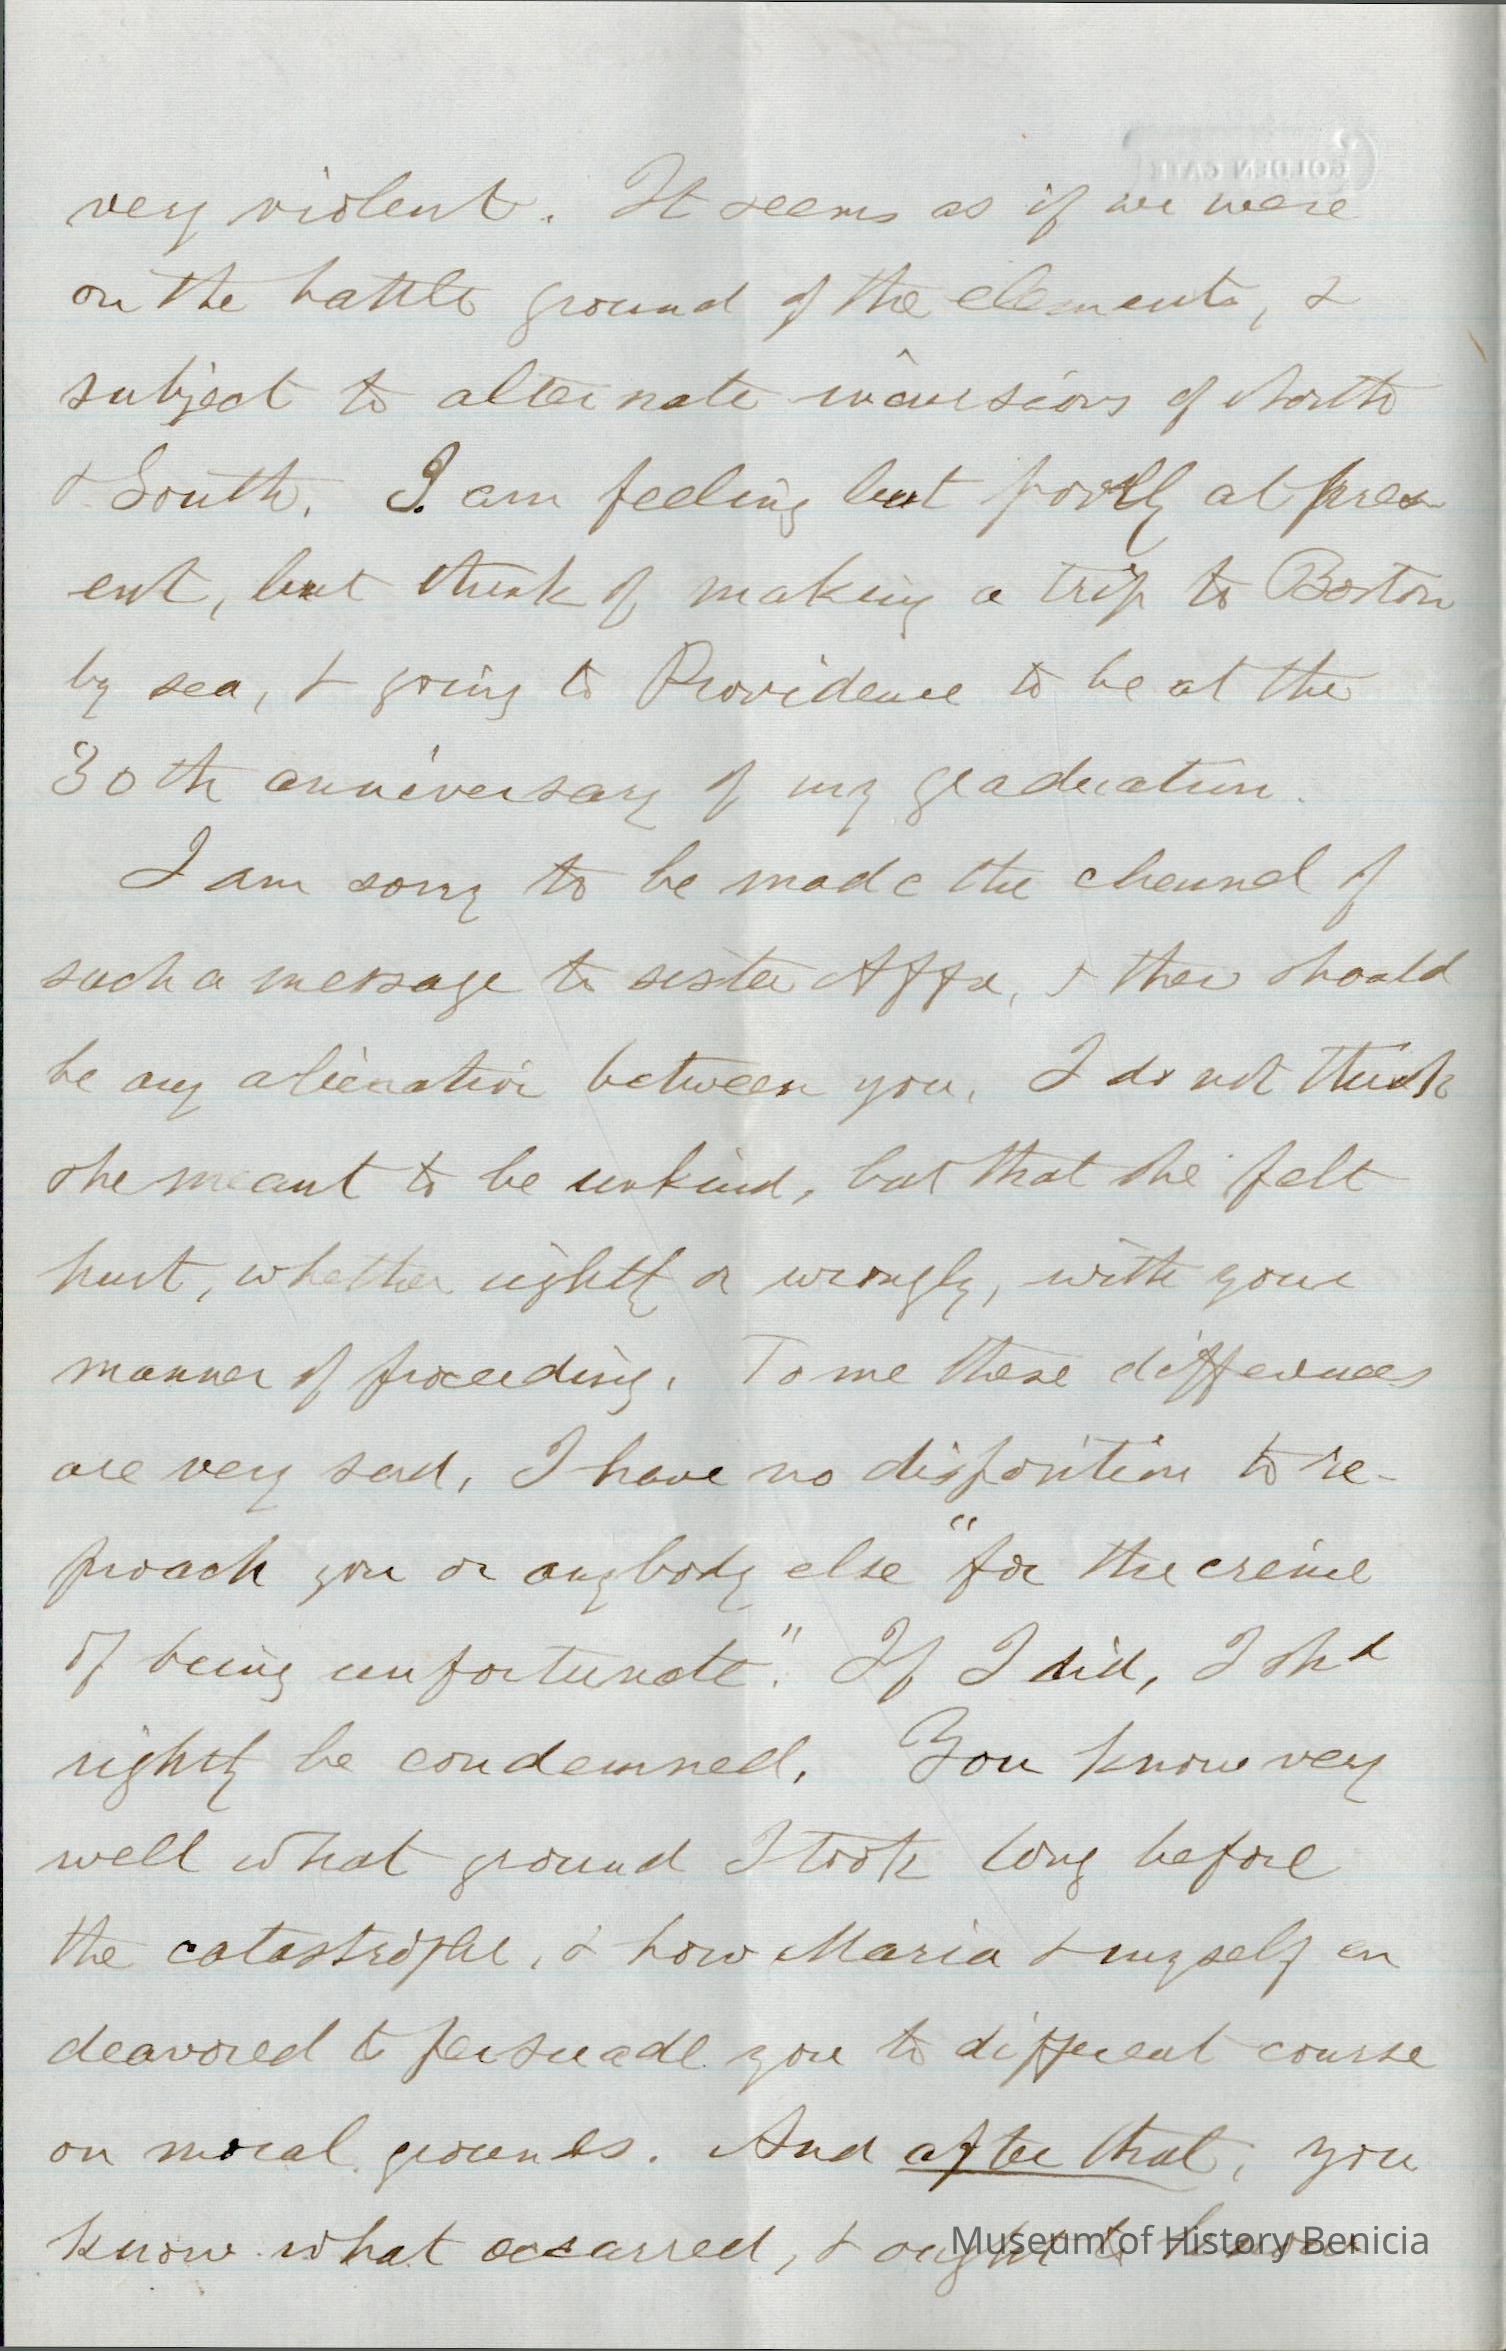 GOLDEN GATE
very violent. It seems as if we were
on the battle ground of the elements, &
subject to alternate incursions of North
& South. I am feeling but poorly at pres-
ent, but think of making a trip to Boston
by sea, & going to Providence to be at the
30th anniversary of my graduation.
I am sorry to be made the channel of
such a message to sister Affa, & ther should
be any alienation between you. I do not think
she meant to be unkind, but that she felt
hurt, whether rightly or wrongly, with your
manner of proceeding. To me these differences
are very sad, I have no disposition to re-
proach you or anybody else "for the crime
of being unfortunate." If I did, I shd
rightly be condemned. You know very
well what ground I took long before
the catastrophe, & how Maria & myself en
deavored to persuade you to different course
on moral grounds. And after that, you
know what occurred, & ought to know
Museum of History Benicia